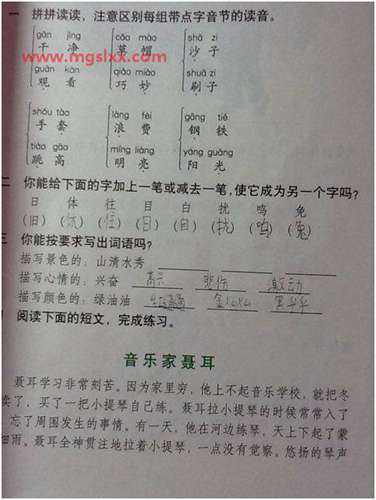 一 拼拼读读，注意区别每组带点字音节的读音。
gān jìng cǎo mào shā zi
干 净 草 帽 沙 子
www.mgslxx.com
guān kàn qiǎo miào shuā zi
观 看 巧 妙 刷 子
shǒu tào làng fèi gāng tiě
手 套 浪 费 钢 铁
tiào gāo míng liàng yáng guāng
跳 高 明 亮 阳 光
二 你能给下面的字加上一笔或减去一笔，使它成为另一个字吗？
日 体 往 目 白 扰 鸣 免
(旧) ( ) (住) (日) (自) (拢) (鸣) (兔)
三 你能按要求写出词语吗？
描写景色的：山清水秀
描写心情的：兴奋 高兴 悲伤 激动
描写颜色的：绿油油 金灿灿 黑乎乎
阅读下面的短文，完成练习。
音乐家聂耳
聂耳学习非常刻苦。因为家里穷，他上不起音乐学校，就把冬
卖了，买了一把小提琴自己练。聂耳拉小提琴的时候常常入了
忘了周围发生的事情。有一天，他在河边练琴，天上下起了蒙
细雨。聂耳全神贯注地拉着小提琴，一点没有觉察。悠扬的琴声